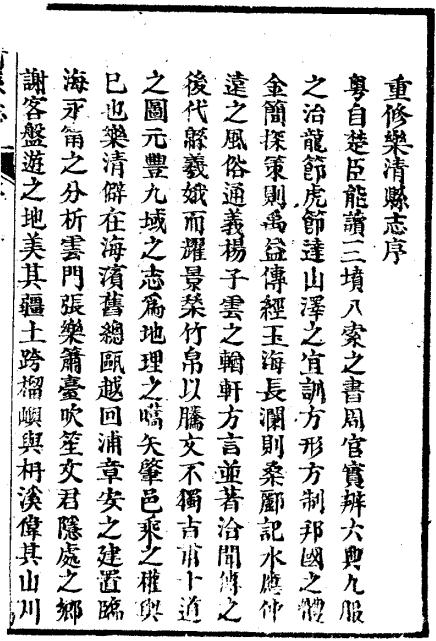 重修樂清縣志序
粵自楚臣能讀三墳八索之書周官實辨六典九服
之治龍節虎節達山澤之宜訓方形方制邦國之體
金簡探策則禹益傳經玉海長瀾則桑酈記水應仲
遠之風俗通義楊子雲之輶軒方言並著洽聞傳之
後代緜羲娥而耀景榮竹帛以騰文不獨吉甫十道
之圖元豐九域之志為地理之嚆矢肇邑乘之權輿
已也樂清僻在海濱舊總甌越回浦章安之建置臨
海永甯之分析雲門張樂簫臺吹笙文君隱處之鄉
謝客盤遊之地美其疆土跨榴嶼與枏溪偉其山川